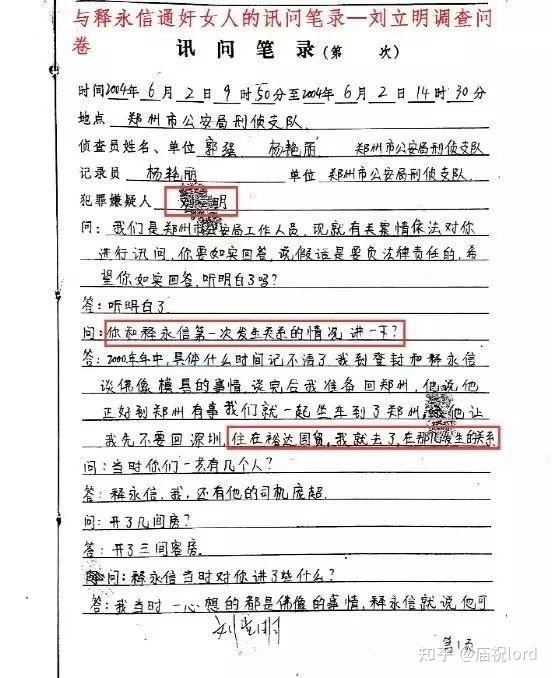 与释永信通奸女人的讯问笔录—刘立明调查问
卷
讯问笔录(第 次)
时间2004年6月2日9时50分至2004年6月2日14时30分
地点 郑州市公安局刑侦支队
侦查员姓名、单位 郭强 杨艳丽 郑州市公安局刑侦支队
记录员 杨艳丽 单位 郑州市公安局刑侦支队
犯罪嫌疑人 明
问:我们是郑州市公安局工作人员,现就有关案情依法对你
进行讯问,你要如实回答,说假话是要负法律责任的,希
望你如实回答,听明白了吗?
答:听明白了.
问:你和释永信第一次发生关系的情况讲一下?
答:2000年年中,具体什么时间记不清了我到登封和释永信
谈佛像模具的事情,谈完后我准备回郑州,他说他
正好到郑州有事我们就一起坐车到了郑州,他让
我先不要回深圳,住在裕达国贸,我就去了,在那儿发生的关系
问:当时你们一共有几个人?
答:释永信,我,还有他的司机庞超.
问:开了几间房?
答:开了三间客房.
问:释永信当时对你讲了些什么?
答:我当时一心想的都是佛像的事情,释永信就说他可
刘立明
第1页
知乎 @庙祝lord